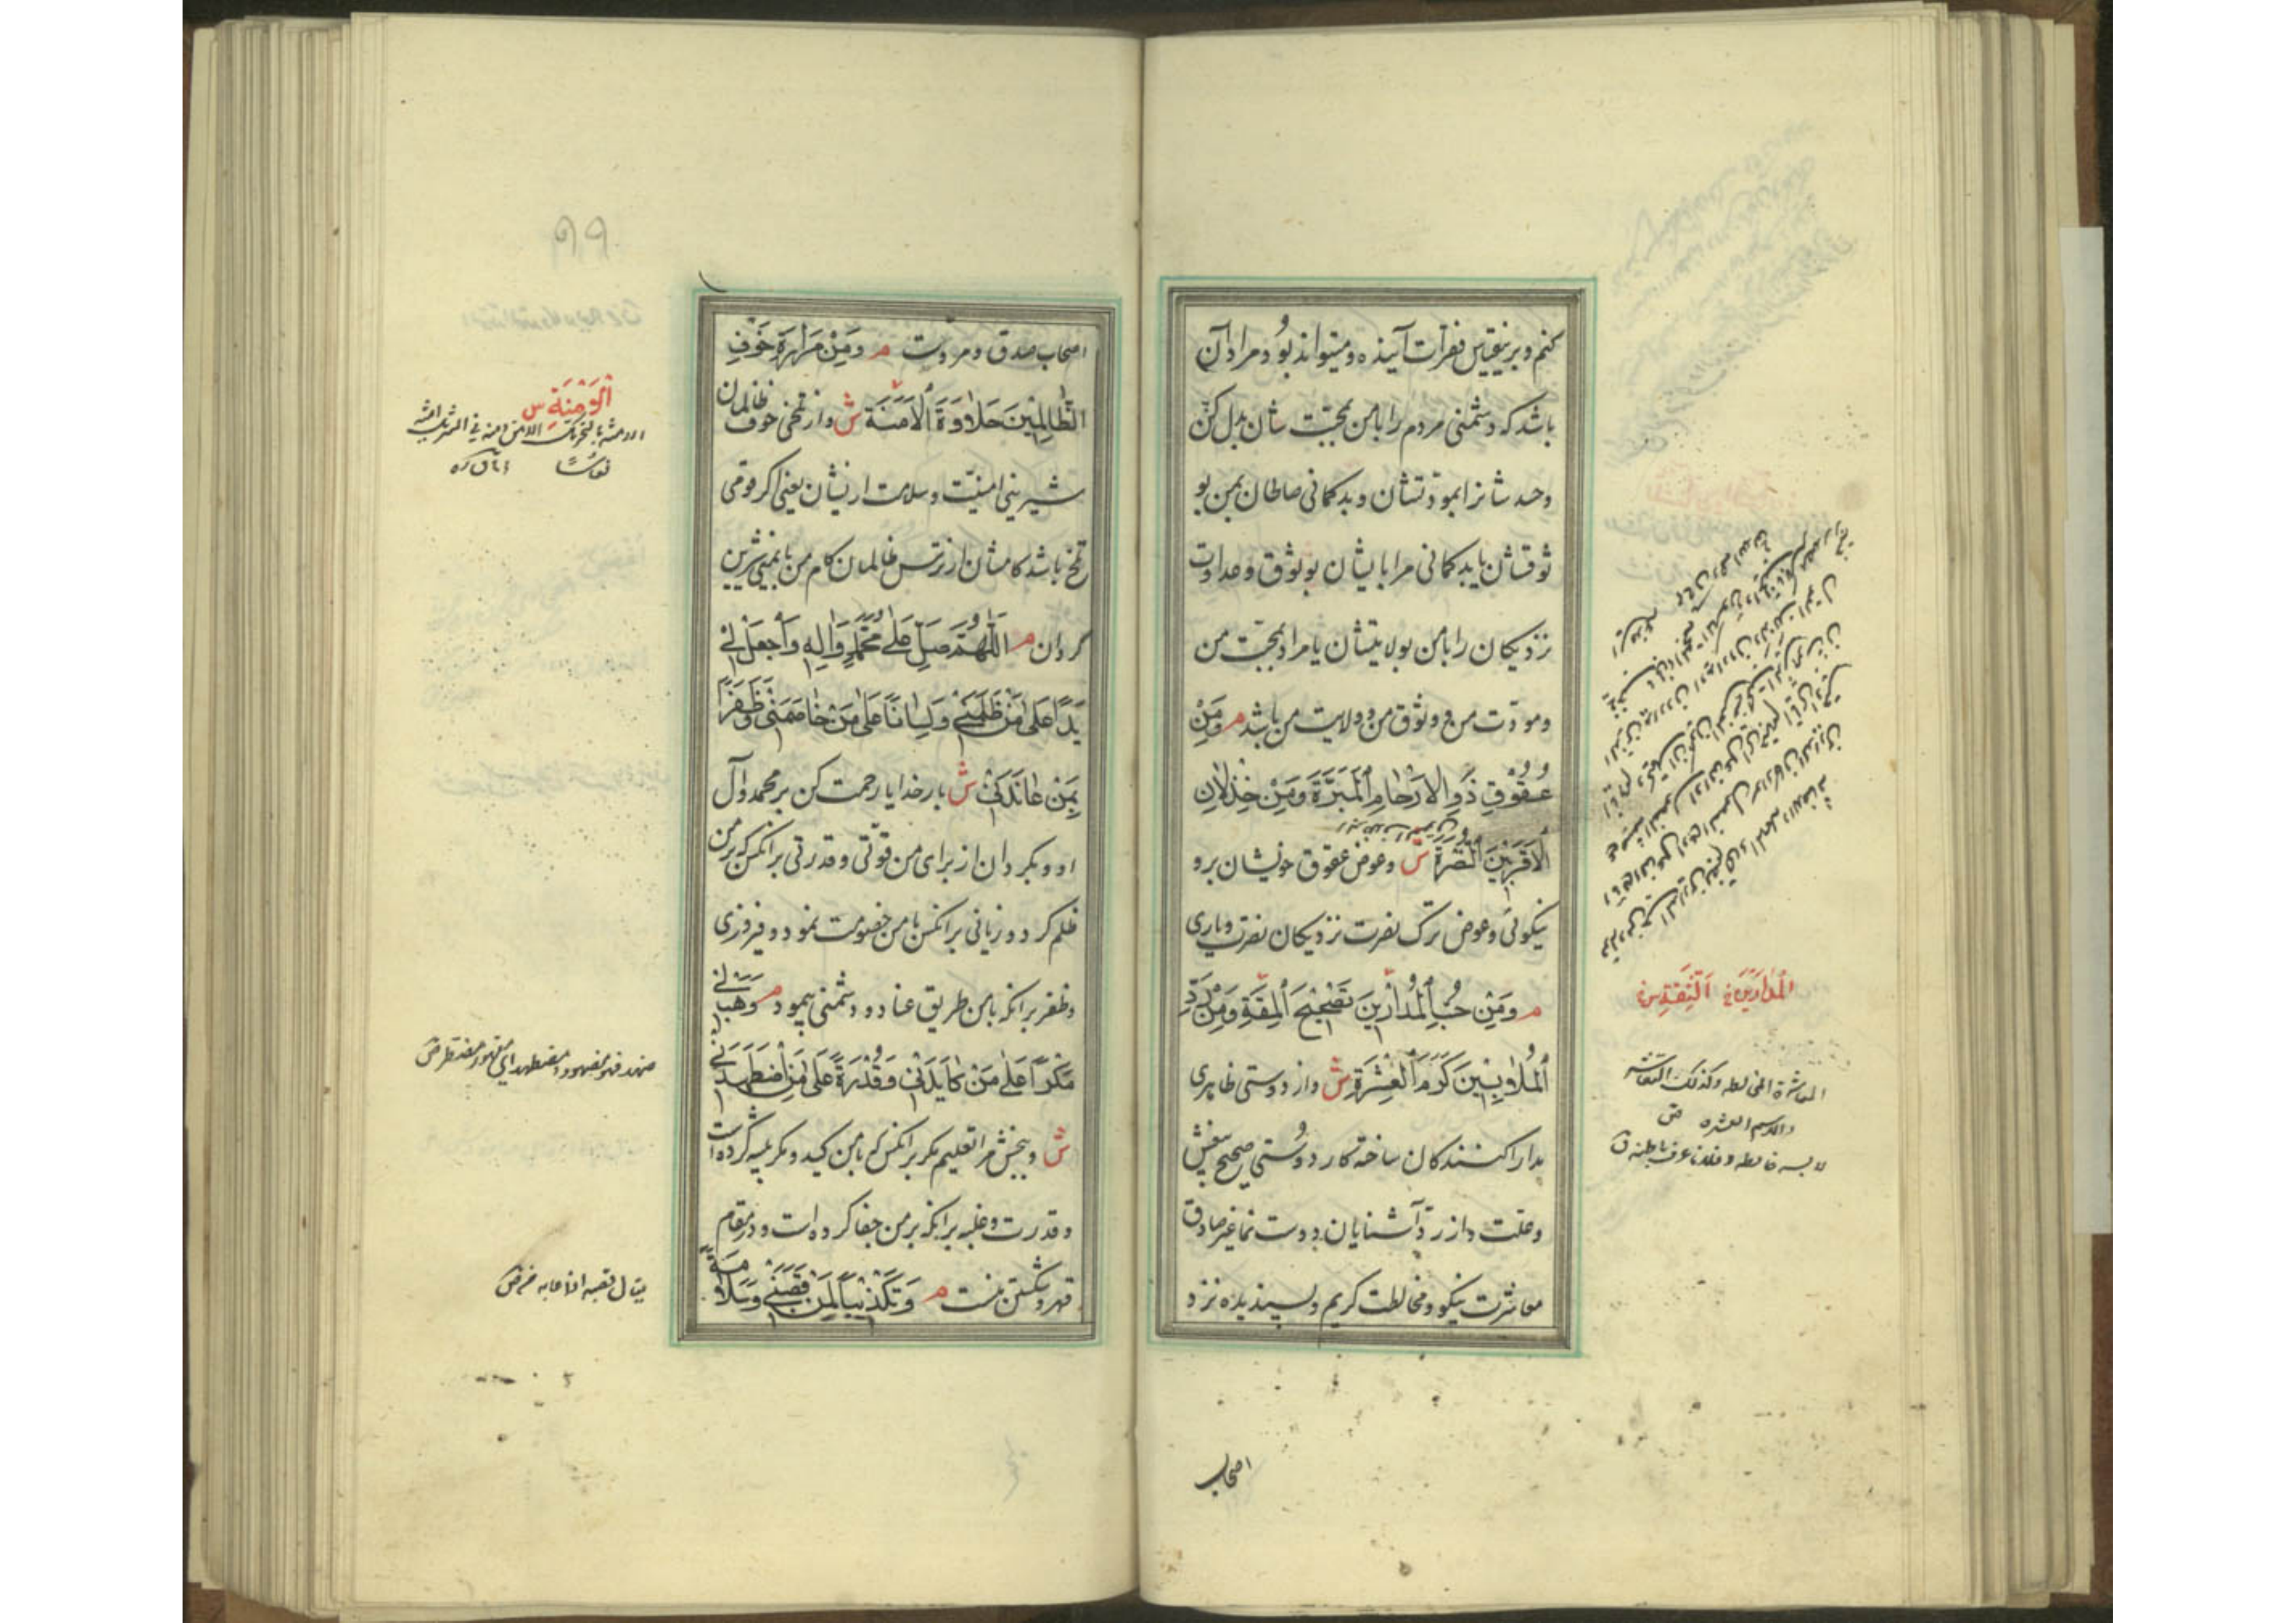 کنم و برینقیاس فقرات آینده و میتواند بود مراد آن
باشد که دشمنی مردم را با من بمحبت شان بدل کن
وحسد شانرا بمودتشان و بدکمانی صلحان بمن بو
ثوقشان یا بدکمانی مرا بایشان بوثوق و عداوت
نزدیکان را با من بولایتشان یا مراد محبت من
ومودت من و وثوق من و ولایت من باشد م وَمِنْ
عُقُوْقِ ذَوِی الاَرْحٰامِ اَلْمَبَرَّةَ وَمِنْ خِذْلانِ
اَلاَقْرَبِیْنَ اَلنُّصْرَةَ ش و عوض عقوق خویشان برو
نیکوئی و عوض ترک نصرت نزدیکان نصرت و یاری
م وَمِنْ حُبِّ اَلْمُدٰارِیْنَ تَصْحِیْحَ اَلْمِقَةِ وَمِنْ رَدِّ
اَلْمُلاٰبِسِیْنَ کَرَمَ اَلْعِشْرَةِ ش و از دوستی ظاهری
مدارا کنندکان ساخته کار دوستی صحیح بیغش
وعلت و از رد آشنایان دوست نما غیر صادق
معاشرت نیکو و مخالطت کریم و پسندیده نزد
اَلْمُدٰارِیْنَ اَلثِّقَةِ س
المعاشرة المخالطه وکذلک التعاشر
والاسم العشره ص
لابسه خالطه وفلانا عرف باطنه ق
اصحاب
۹۹
اصحاب صدق و مروت م وَمِنْ مَرٰارَةِ خَوْفِ
الظّٰالِمِیْنَ حَلاٰوَةَ اَلْاَمَنَةِ ش و از تلخی خوف ظالمان
شیرینی امنیت و سلامت ازیشان یعنی اکر قومی
تلخ باشد کامشان از ترس ظالمان کام من بایمنی شیرین
کردان م اَللّٰهُمَّ صَلِّ عَلٰی مُحَمَّدٍ وَاٰلِهِ وَاجْعَلْ لِیْ
یَدًا عَلٰی مَنْ ظَلَمَنِیْ وَلِسٰانًا عَلٰی مَنْ خٰاصَمَنِیْ وَظَفَرًا
بِمَنْ عٰانَدَنِیْ ش بار خدایا رحمت کن بر محمد وآل
او و بکردان از برای من قوتی و قدرتی بر انکس که بر من
ظلم کرد و زبانی بر انکس با من خصومت نمود و فیروزی
وظفر بر انکه با من طریق عناد و دشمنی پیمود م وَهَبْ لِیْ
مَکْرًا عَلٰی مَنْ کٰایَدَنِیْ وَقُدْرَةً عَلٰی مَنِ اضْطَهَدَنِیْ
ش و ببخش مرا تعلیم مکر بر انکس که با من کید و مکر پیشه کرده است
وقدرت و غلبه بر انکه بر من جفا کرده است و در مقام
قهر و شکستن منست م وَتَکْذِیْبًا لِمَنْ قَصَبَنِیْ وَسَلاٰمَةً
اَلْاَمَنَةِ س
ضهده فهو مضهود و مضطهد ای مقهور مضطر ص
یقال قصبه اذا عابه ص